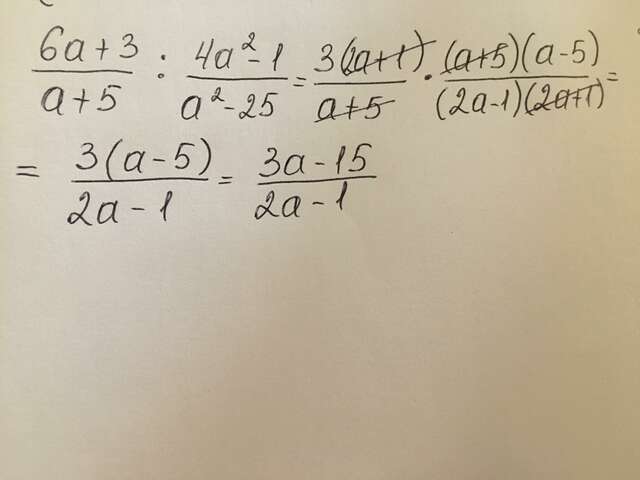 (6a+3)/(a+5) : (4a²-1)/(a²-25) = 3(2a+1)/(a+5) · (a+5)(a-5)/((2a-1)(2a+1)) =
= 3(a-5)/(2a-1) = (3a-15)/(2a-1)